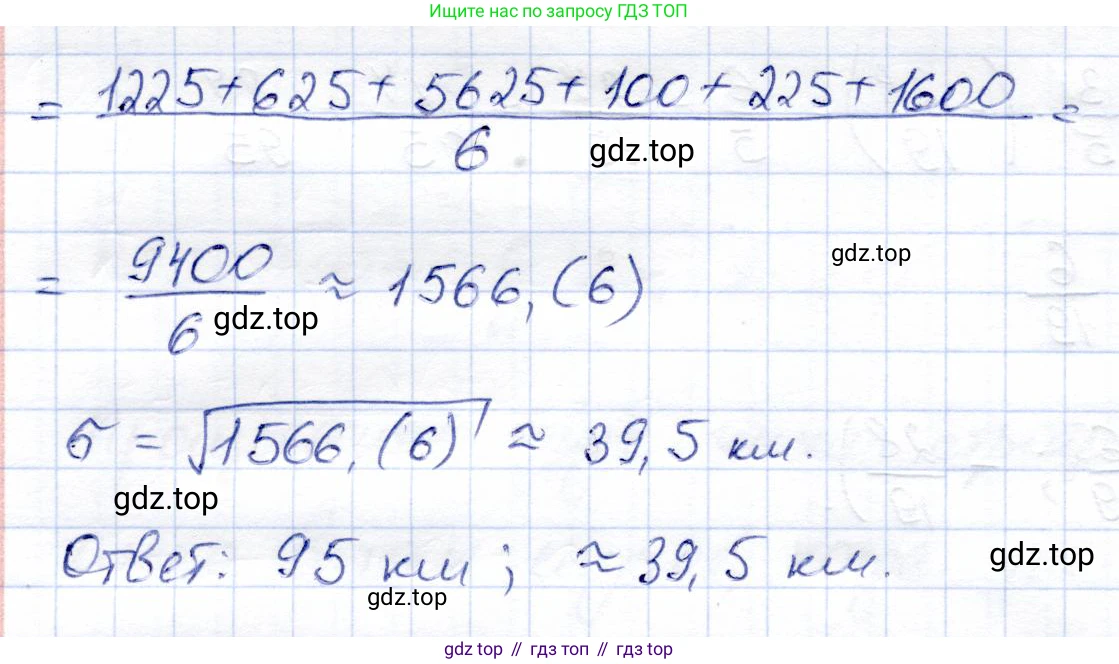 Ищите нас по запросу ГДЗ ТОП
= 1225+625+5625+100+225+1600 =
6
gdz.top
gdz.top
= 9400 ≈ 1566,(6)
6
gdz.top
σ = √1566,(6) ≈ 39,5 км.
gdz.top
Ответ: 95 км; ≈ 39,5 км.
gdz.top
gdz.top
gdz top // гдз топ // gdz top